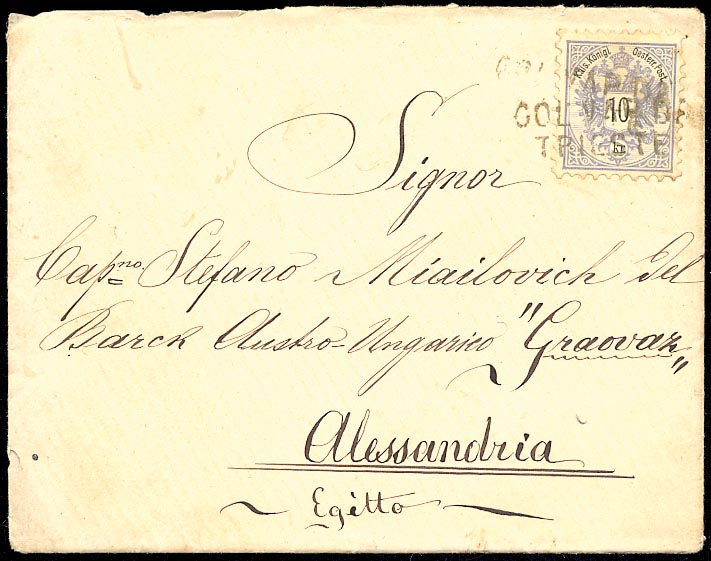 Kais. Königl. Oesterr. Post.
10
kr
COL VAP DA
TRIESTE
Signor
Cap.no Stefano Miailovich del
Barck Austro-Ungarico "Graovaz"
Alessandria
Egitto